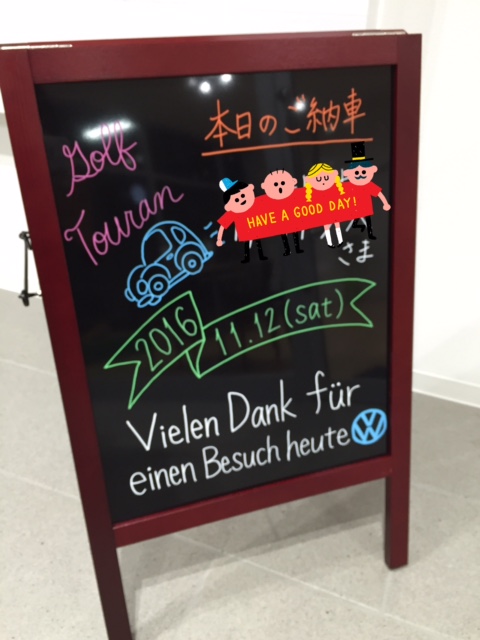 本日のご納車
Golf
Touran
HAVE A GOOD DAY!
さま
2016
11.12(sat)
Vielen Dank für
einen Besuch heute